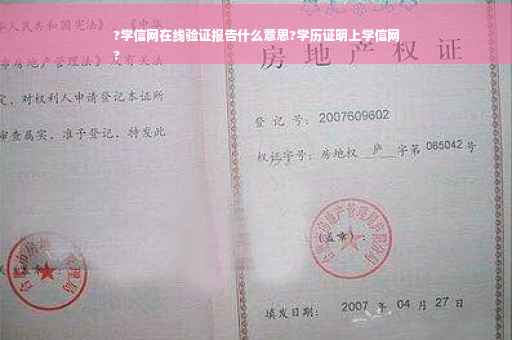 ?学信网在线验证报告什么意思?学历证明上学信网
?
人民共和国宪法》、《中华
房地产管理法》及有关法
定，对权利人申请登记本证所
审查属实，准予登记，特发此
房地产权证
登记号：2007609602
权证字号：房地权 庐 字第 085042 号
（盖章）：
填发日期： 2007 年 04 月 27 日